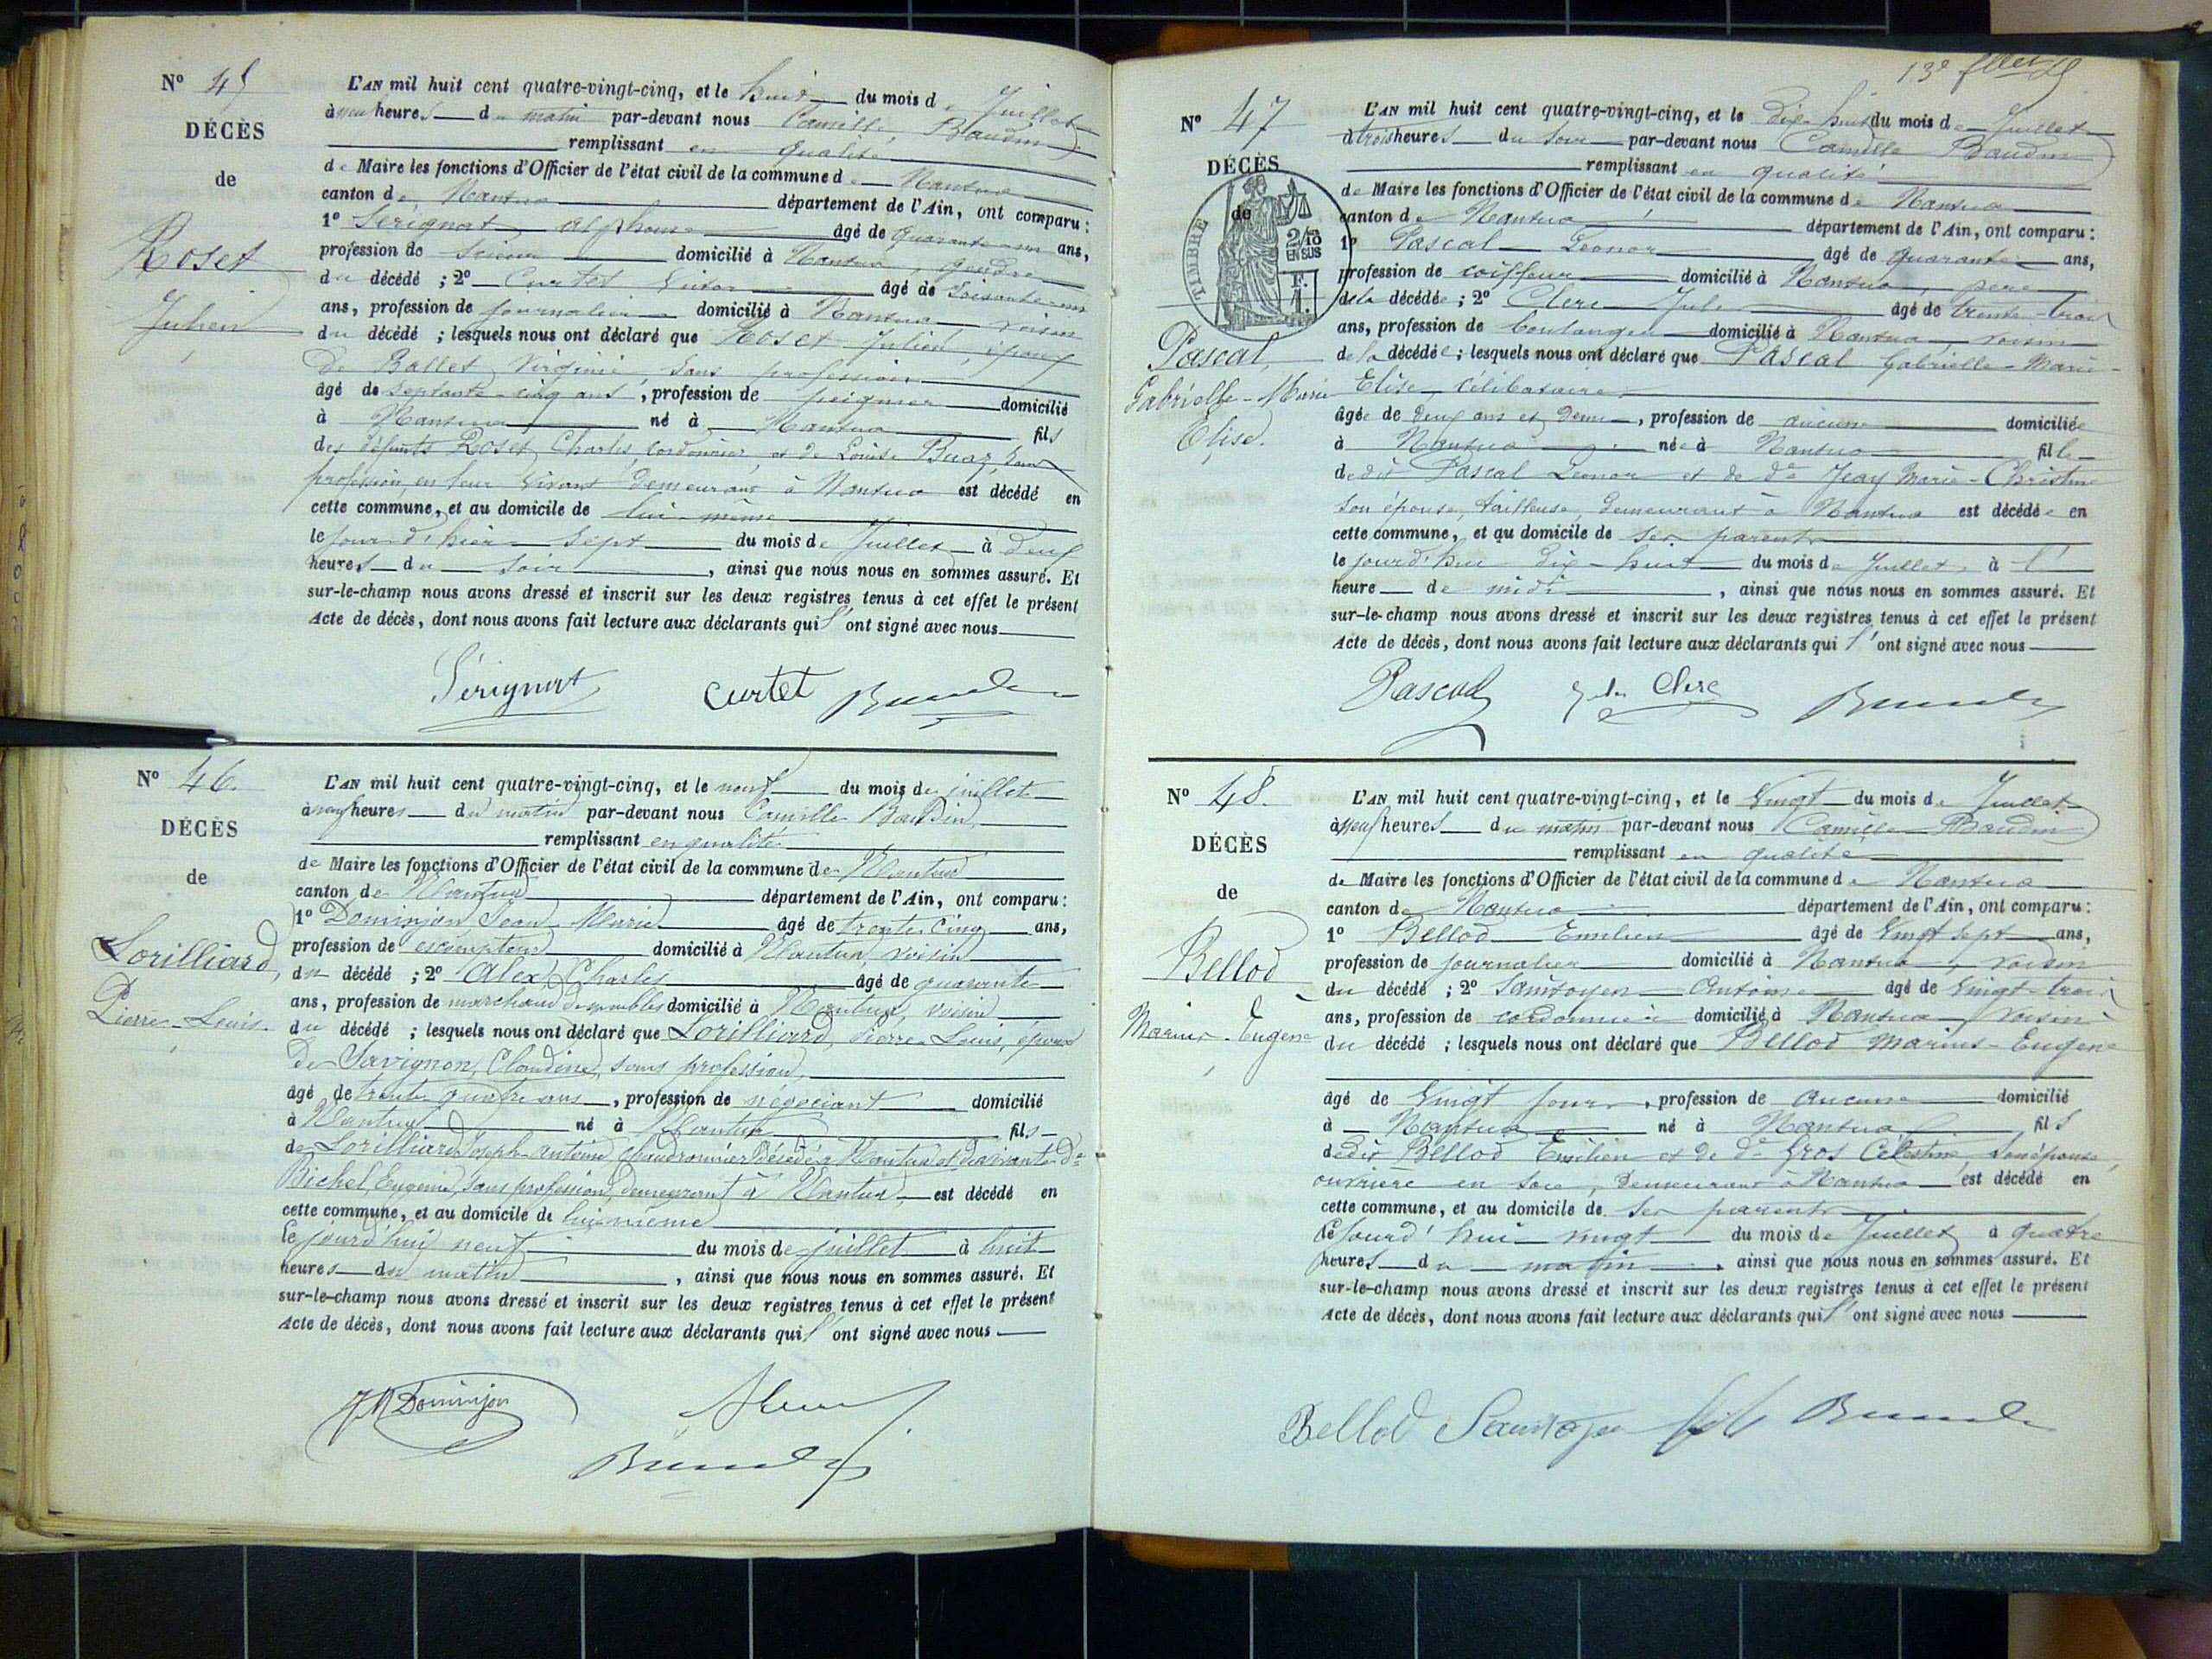 N° 45
DÉCÈS
de
Roset
Julien
L'AN mil huit cent quatre-vingt-cinq, et le huit du mois de Juillet
à neuf heures du matin par-devant nous Camille Baudin
remplissant en qualité
de Maire les fonctions d'Officier de l'état civil de la commune de Nantua
canton de Nantua département de l'Ain, ont comparu :
1° Serignat alphonse âgé de quarante-un ans,
profession de domicilié à Nantua, gendre
du décédé ; 2° Curtet Victor âgé de soixante-un
ans, profession de journalier domicilié à Nantua, voisin
du décédé ; lesquels nous ont déclaré que Roset Julien, époux
de Ballet Virginie sans profession
âgé de septante-cinq ans, profession de peigneur domicilié
à Nantua né à Nantua fils
des défunts Roset Charles, cordonnier, et de Louise Buaz, sans
profession, en leur vivant demeurant à Nantua est décédé en
cette commune, et au domicile de lui-même
le jour d'hier sept du mois de Juillet à deux
heures du soir, ainsi que nous nous en sommes assuré. Et
sur-le-champ nous avons dressé et inscrit sur les deux registres tenus à cet effet le présent
Acte de décès, dont nous avons fait lecture aux déclarants qui l'ont signé avec nous
Sérignat Curtet Baudin
N° 46.
DÉCÈS
de
Lorilliard,
Pierre-Louis.
L'AN mil huit cent quatre-vingt-cinq, et le neuf du mois de juillet
à neuf heures du matin par-devant nous Camille Baudin,
remplissant en qualité
de Maire les fonctions d'Officier de l'état civil de la commune de Nantua
canton de Nantua département de l'Ain, ont comparu :
1° Dominjon Jean Marie âgé de trente cinq ans,
profession de escompteur domicilié à Nantua, voisin
du décédé ; 2° Alex, Charles âgé de quarante
ans, profession de marchand de meubles domicilié à Nantua, voisin
du décédé ; lesquels nous ont déclaré que Lorilliard, Pierre-Louis, époux
de Savignon, Claudine, sans profession,
âgé de trente quatre ans, profession de négociant domicilié
à Nantua né à Nantua fils
de Lorilliard Joseph-antoine, chaudronnier décédé à Nantua et de vivante De
Bichel, Eugénie, sans profession, demeurant à Nantua, est décédé en
cette commune, et au domicile de lui-même
le jourd'hui neuf du mois de juillet à huit
heures du matin, ainsi que nous nous en sommes assuré. Et
sur-le-champ nous avons dressé et inscrit sur les deux registres tenus à cet effet le présent
Acte de décès, dont nous avons fait lecture aux déclarants qui l'ont signé avec nous
JM Dominjon Alex
Baudin
13e
N° 47
DÉCÈS
de
TIMBRE
2/10
EN SUS
F.
1.
Pascal,
Gabrielle-Marie
Elise.
L'AN mil huit cent quatre-vingt-cinq, et le dix-huit du mois de Juillet
à trois heures du soir par-devant nous Camille Baudin
remplissant en qualité
de Maire les fonctions d'Officier de l'état civil de la commune de Nantua
canton de Nantua département de l'Ain, ont comparu :
1° Pascal Léonor âgé de quarante ans,
profession de coiffeur domicilié à Nantua, père
de la décédée ; 2° Clerc Jules âgé de trente-trois
ans, profession de boulanger domicilié à Nantua, voisin
de la décédée ; lesquels nous ont déclaré que Pascal Gabrielle-Marie-
Elise, célibataire
âgée de deux ans et demi, profession de aucune domiciliée
à Nantua née à Nantua fille
dedit Pascal Léonor et de de Jeay Marie-Christine
son épouse, tailleuse, demeurant à Nantua est décédée en
cette commune, et au domicile de ses parents
le jourd'hui dix-huit du mois de Juillet, à l'
heure de midi, ainsi que nous nous en sommes assuré. Et
sur-le-champ nous avons dressé et inscrit sur les deux registres tenus à cet effet le présent
Acte de décès, dont nous avons fait lecture aux déclarants qui l'ont signé avec nous
Pascal Jules Clerc Baudin
N° 48.
DÉCÈS
de
Bellod
Marius-Eugene
L'AN mil huit cent quatre-vingt-cinq, et le Vingt du mois de Juillet
à neuf heures du matin par-devant nous Camille Baudin
remplissant en qualité
de Maire les fonctions d'Officier de l'état civil de la commune de Nantua
canton de Nantua département de l'Ain, ont comparu :
1° Bellod Emilien âgé de Vingt sept ans,
profession de journalier domicilié à Nantua, voisin
du décédé ; 2° Santoyen Antoine âgé de Vingt-trois
ans, profession de cordonnier domicilié à Nantua, voisin
du décédé ; lesquels nous ont déclaré que Bellod Marius-Eugene
âgé de Vingt jours, profession de aucune domicilié
à Nantua né à Nantua fils
dedit Bellod Emilien et de de Gros Célestine, son épouse,
ouvrière en soie, demeurant à Nantua est décédé en
cette commune, et au domicile de ses parents
le jourd'hui vingt du mois de Juillet à quatre
heures du matin, ainsi que nous nous en sommes assuré. Et
sur-le-champ nous avons dressé et inscrit sur les deux registres tenus à cet effet le présent
Acte de décès, dont nous avons fait lecture aux déclarants qui l'ont signé avec nous
Bellod Santoyen fils Baudin